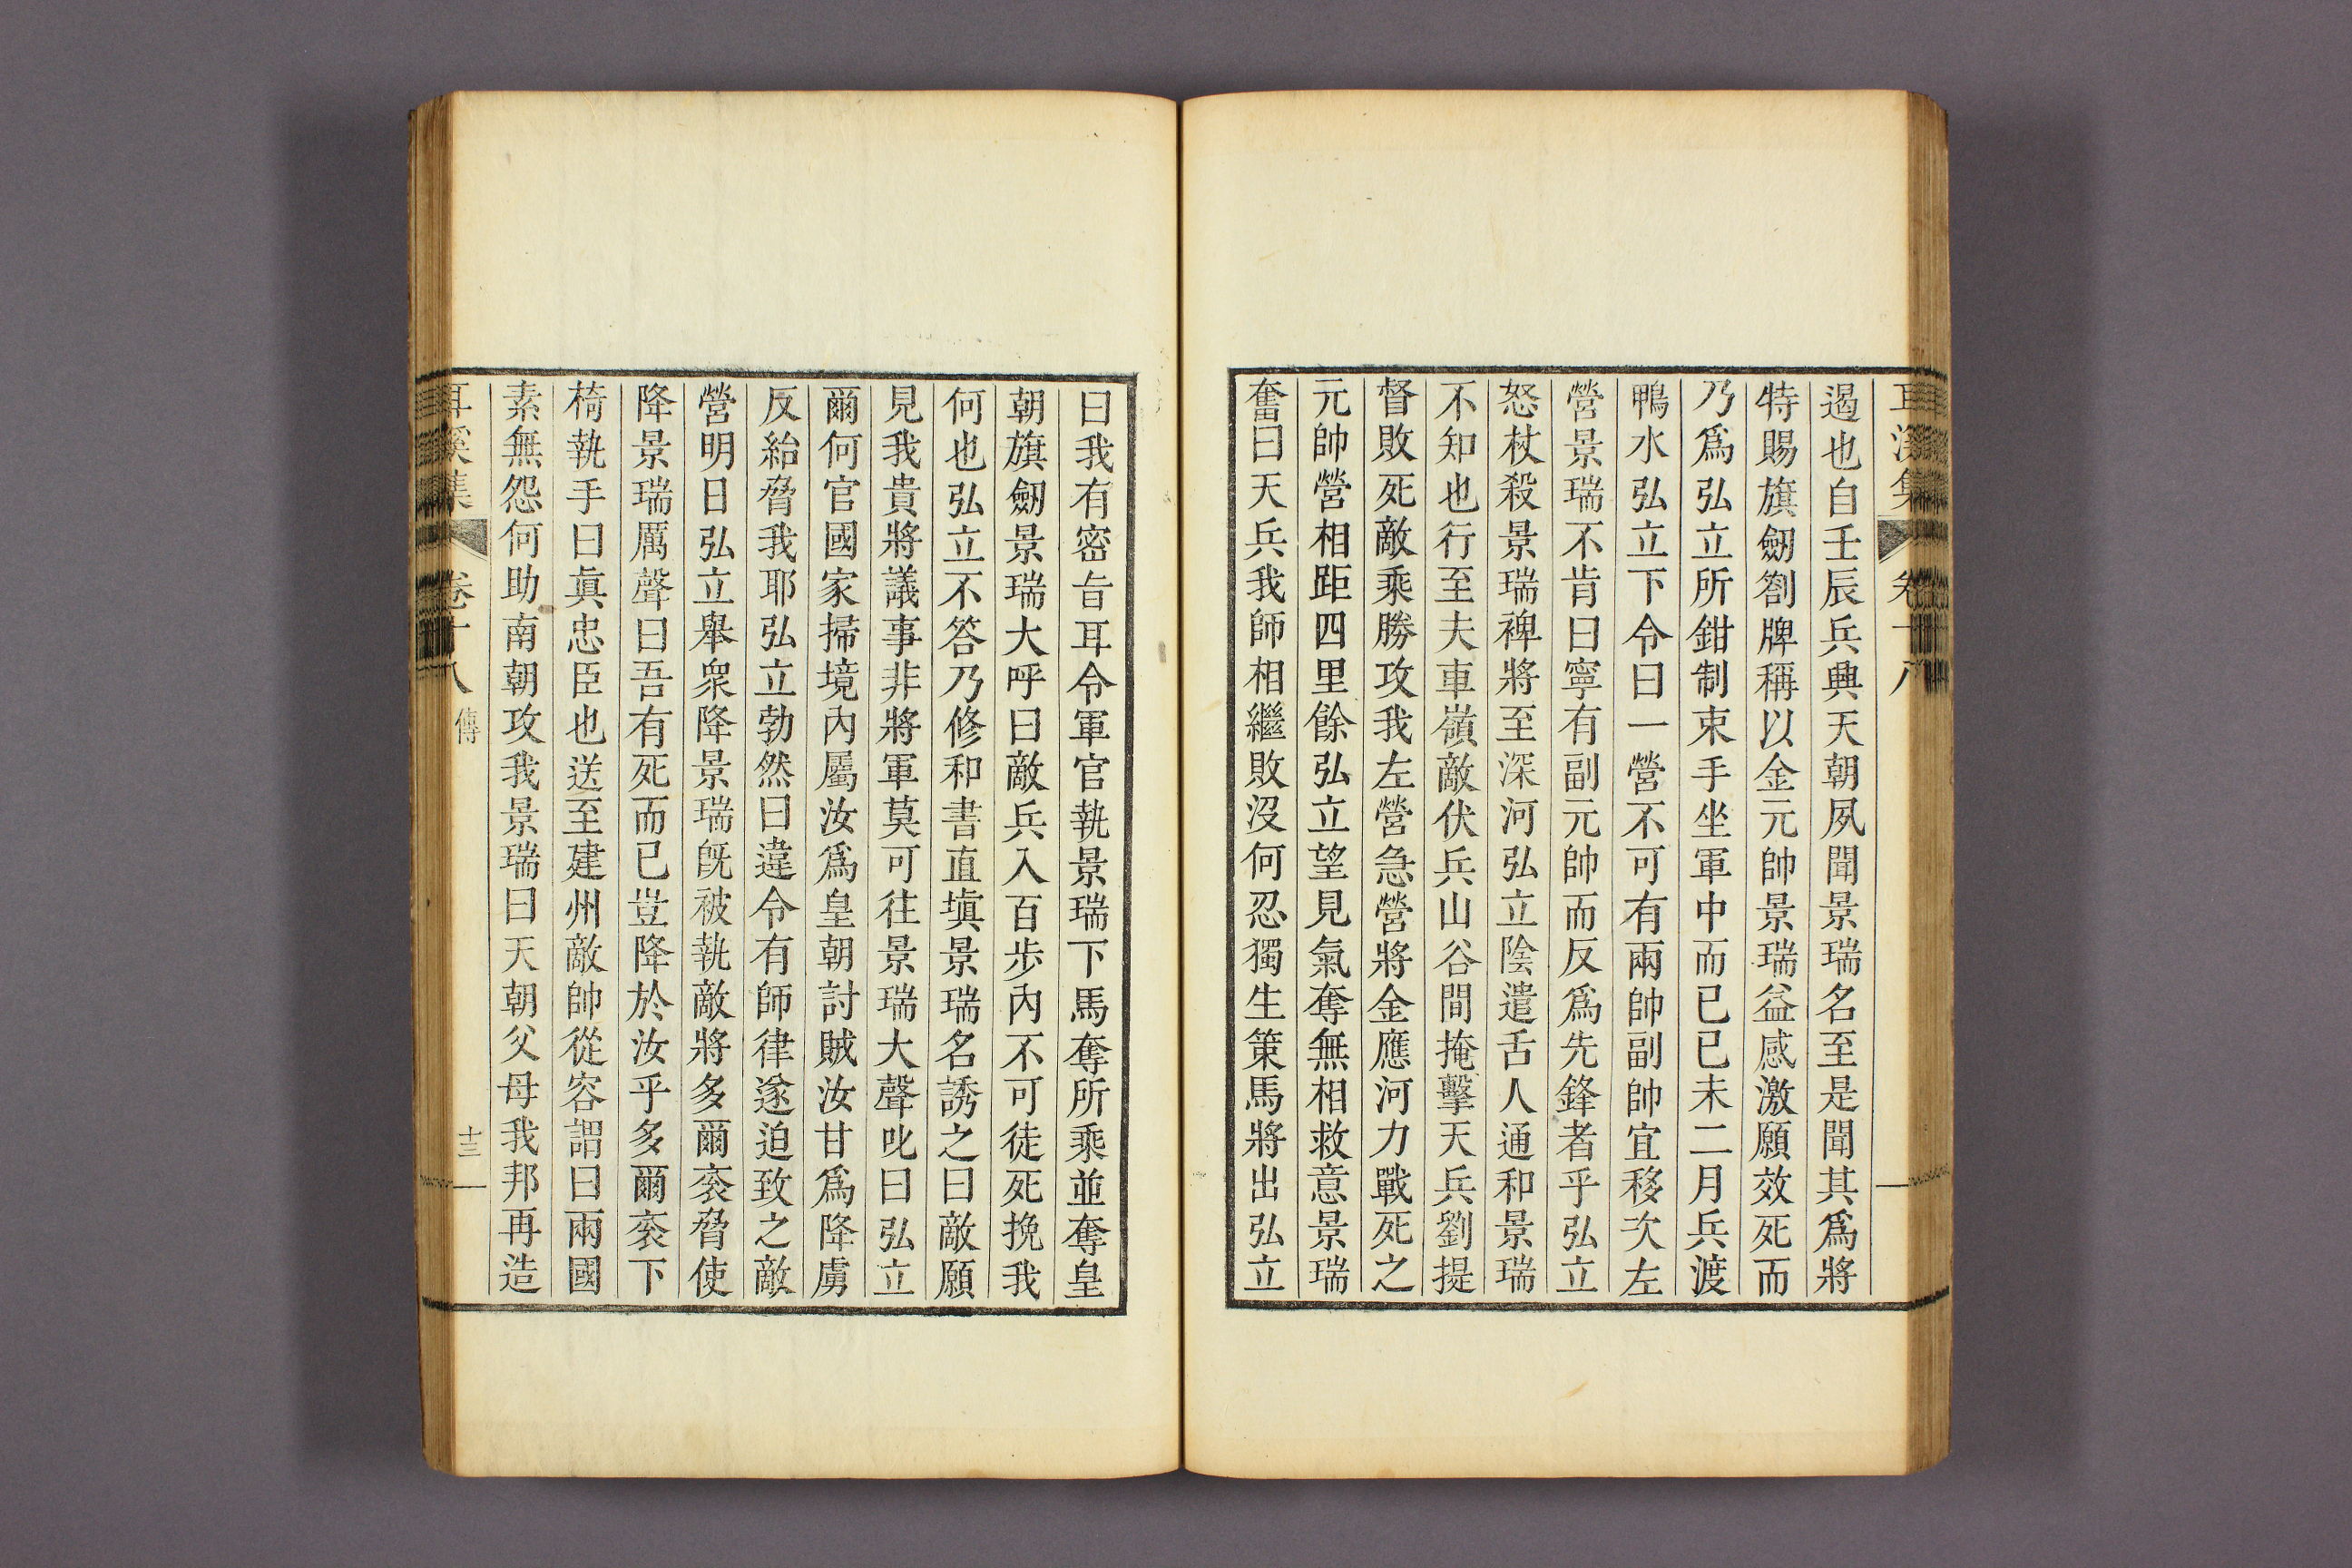 耳溪集 卷十八
遏也自壬辰兵興天朝夙聞景瑞名至是聞其爲將
特賜旗劒劄牌稱以金元帥景瑞益感激願效死而
乃爲弘立所鉗制束手坐軍中而已己未二月兵渡
鴨水弘立下令曰一營不可有兩帥副帥宜移次左
營景瑞不肯曰寧有副元帥而反爲先鋒者乎弘立
怒杖殺景瑞裨將至深河弘立陰遣舌人通和景瑞
不知也行至夫車嶺敵伏兵山谷間掩擊天兵劉提
督敗死敵乘勝攻我左營急營將金應河力戰死之
元帥營相距四里餘弘立望見氣奪無相救意景瑞
奮曰天兵我師相繼敗沒何忍獨生策馬將出弘立
曰我有密旨耳令軍官執景瑞下馬奪所乘並奪皇
朝旗劒景瑞大呼曰敵兵入百步內不可徒死挽我
何也弘立不答乃修和書直塡景瑞名誘之曰敵願
見我貴將議事非將軍莫可往景瑞大聲叱曰弘立
爾何官國家掃境內屬汝爲皇朝討賊汝甘爲降虜
反紿脅我耶弘立勃然曰違令有師律遂迫致之敵
營明日弘立舉衆降景瑞旣被執敵將多爾袞脅使
降景瑞厲聲曰吾有死而已豈降於汝乎多爾袞下
椅執手曰眞忠臣也送至建州敵帥從容謂曰兩國
素無怨何助南朝攻我景瑞曰天朝父母我邦再造
耳溪集 卷十八 傳 十三